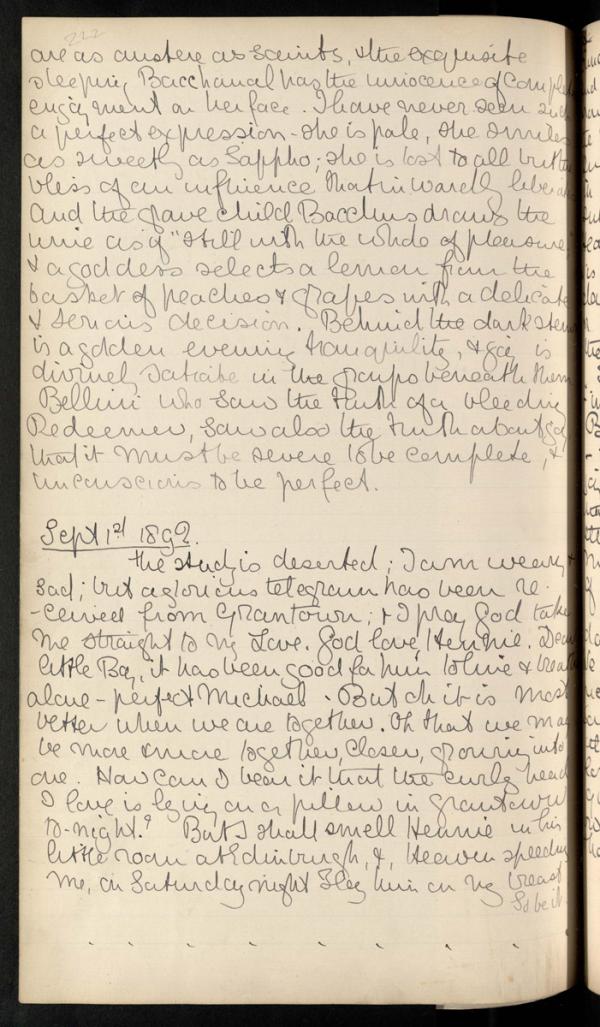 222
are as austere as saints, & the exquisite
sleeping Bacchanal has the innocence of comple
enjoyment on her face. I have never seen such
a perfect expression - she is pale, she smiles
as sweetly as Sappho; she is lost to all but the
bliss of an influence that inwardly liberates
And the grave child Bacchus draws the
wine as if "still with the whole of pleasure"
& a goddess selects a lemon from the
basket of peaches & grapes with a delicate
& serious decision. Behind the dark stems
is a golden evening tranquility, & joy is
divinely in the groups beneath them
Bellini who saw the truth of a bleeding
Redeemer, saw also the truth about joy
that it must be severe to be complete, &
unconscious to be perfect.
Sept 1st 1892.
The study is deserted; I am weary &
sad; but a glorious telegram has been re-
-ceived from Grantown; & I pray God take
me straight to my Love. God love Hennie. Dear
little Boy, it has been good for him to live & breathe
alone - perfect Michael. But oh it is most
better when we are together. Oh that we may
be more & more together, closer, growing into
one. How can I bear it that the curly head
I love is lying on a pillow in Grantown
to-night? But I shall smell Hennie in his
little room at Edinburgh, &, Heaven speeding
me, on Saturday night I lay him on my breast
So be it.